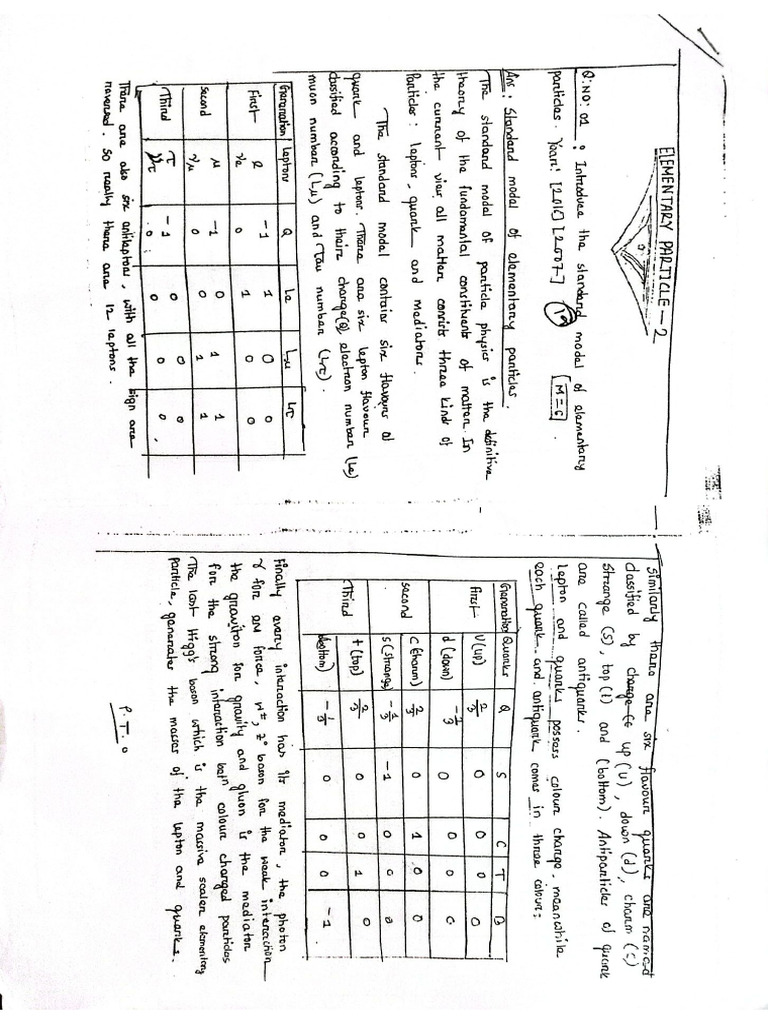 ELEMENTARY PARTICLE - 2
Q:NO: 01 : Introduce the standard model of elementary
particles. Year: [2016] [2007] [M=6].
Ans: Standard model of elementary particles.
The standard model of particle physics is the definitive
theory of the fundamental constituents of matter. In
the current view all matter consists three kind of
Particles: leptons, quark and mediators.
The standard model contains six flavours of
quark and leptons. There are six lepton flavour
classified according to their charge(Q) electron number (Le)
muon number (Lμ) and Tau number (Lτ).
Generation Leptons Q Le Lμ Lτ
First e -1 1 0 0
νe 0 1 0 0
Second μ -1 0 1 1
νμ 0 0 1 1
Third τ -1 0 0 0
ντ 0 0 0 0
There are also six antileptons, with all the sign are
reversed. So really there are 12 leptons.
Similarly there are six flavour quarks are named
classified by up (U), down (d), charm (c)
strange (S), top (t) and (bottom). Antiparticles of quark
are called antiquarks.
lepton and quarks possess colour charge, meanwhile
each quark and antiquark comes in three colours
Generation Quarks Q S C T B
first U(up) 2/3 0 0 0 0
d (down) -1/3 0 0 0 0
second C (charm) 2/3 0 1 0 0
S (strange) -1/3 -1 0 0 0
Third t (top) 2/3 0 0 1 0
(bottom) -1/3 0 0 0 -1
Finally every interaction has its mediator, the photon
γ for EM force, W±, Z° boson for the weak interaction
the graviton for gravity and gluon is the mediator
for the strong interaction betn colour charged particles
The last Higg's boson which is the massive scalar elementary
particle, generates the masses of the lepton and quarks.
P.T.O